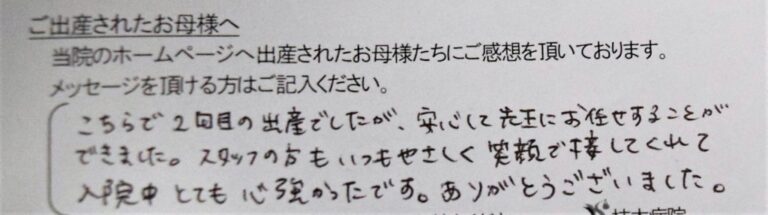 ご出産されたお母様へ
当院のホームページへ出産されたお母様たちにご感想を頂いております。
メッセージを頂ける方はご記入ください。
こちらで2回目の出産でしたが、安心して先生にお任せすることが
できました。スタッフの方もいつもやさしく笑顔で接してくれて
入院中とても心強かったです。ありがとうございました。